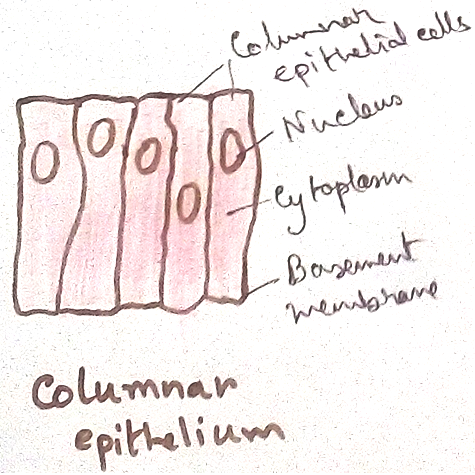 Columnar
epithelial cells
Nucleus
Cytoplasm
Basement
membrane
Columnar
epithelium